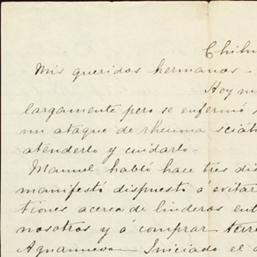 Chihu
Mis queridos hermanos.-
Hoy m
largamente pero se enfermó
un ataque de rheuma sciát
atenderlo y cuidarlo.
Manuel habló hace tres dí
manifestó dispuesto á evitar
tiones acerca de linderos ent
nosotros y á comprar terr
Aguanueva. Iniciado el a